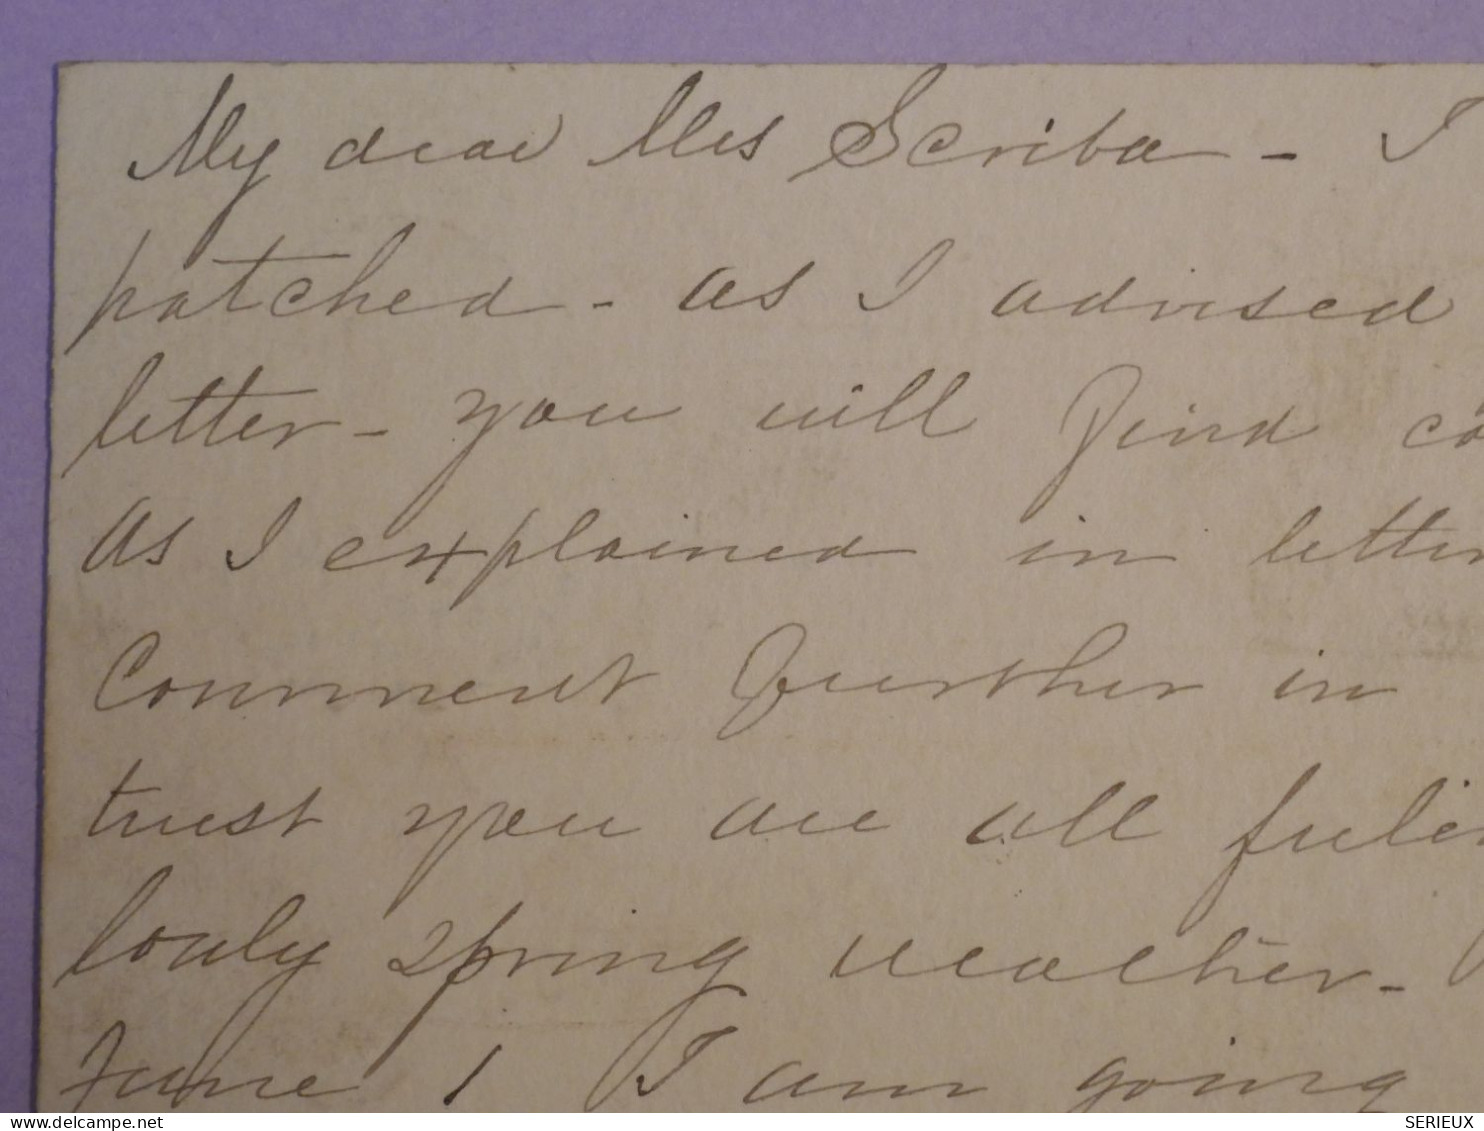 My dear Mrs Scriba - I
patched - as I advised
letter - you will find co
as I explained in letter
Comment further in
trust you are all feelin
lovely spring weather -
June 1 I am going
www.delcampe.net
SERIEUX